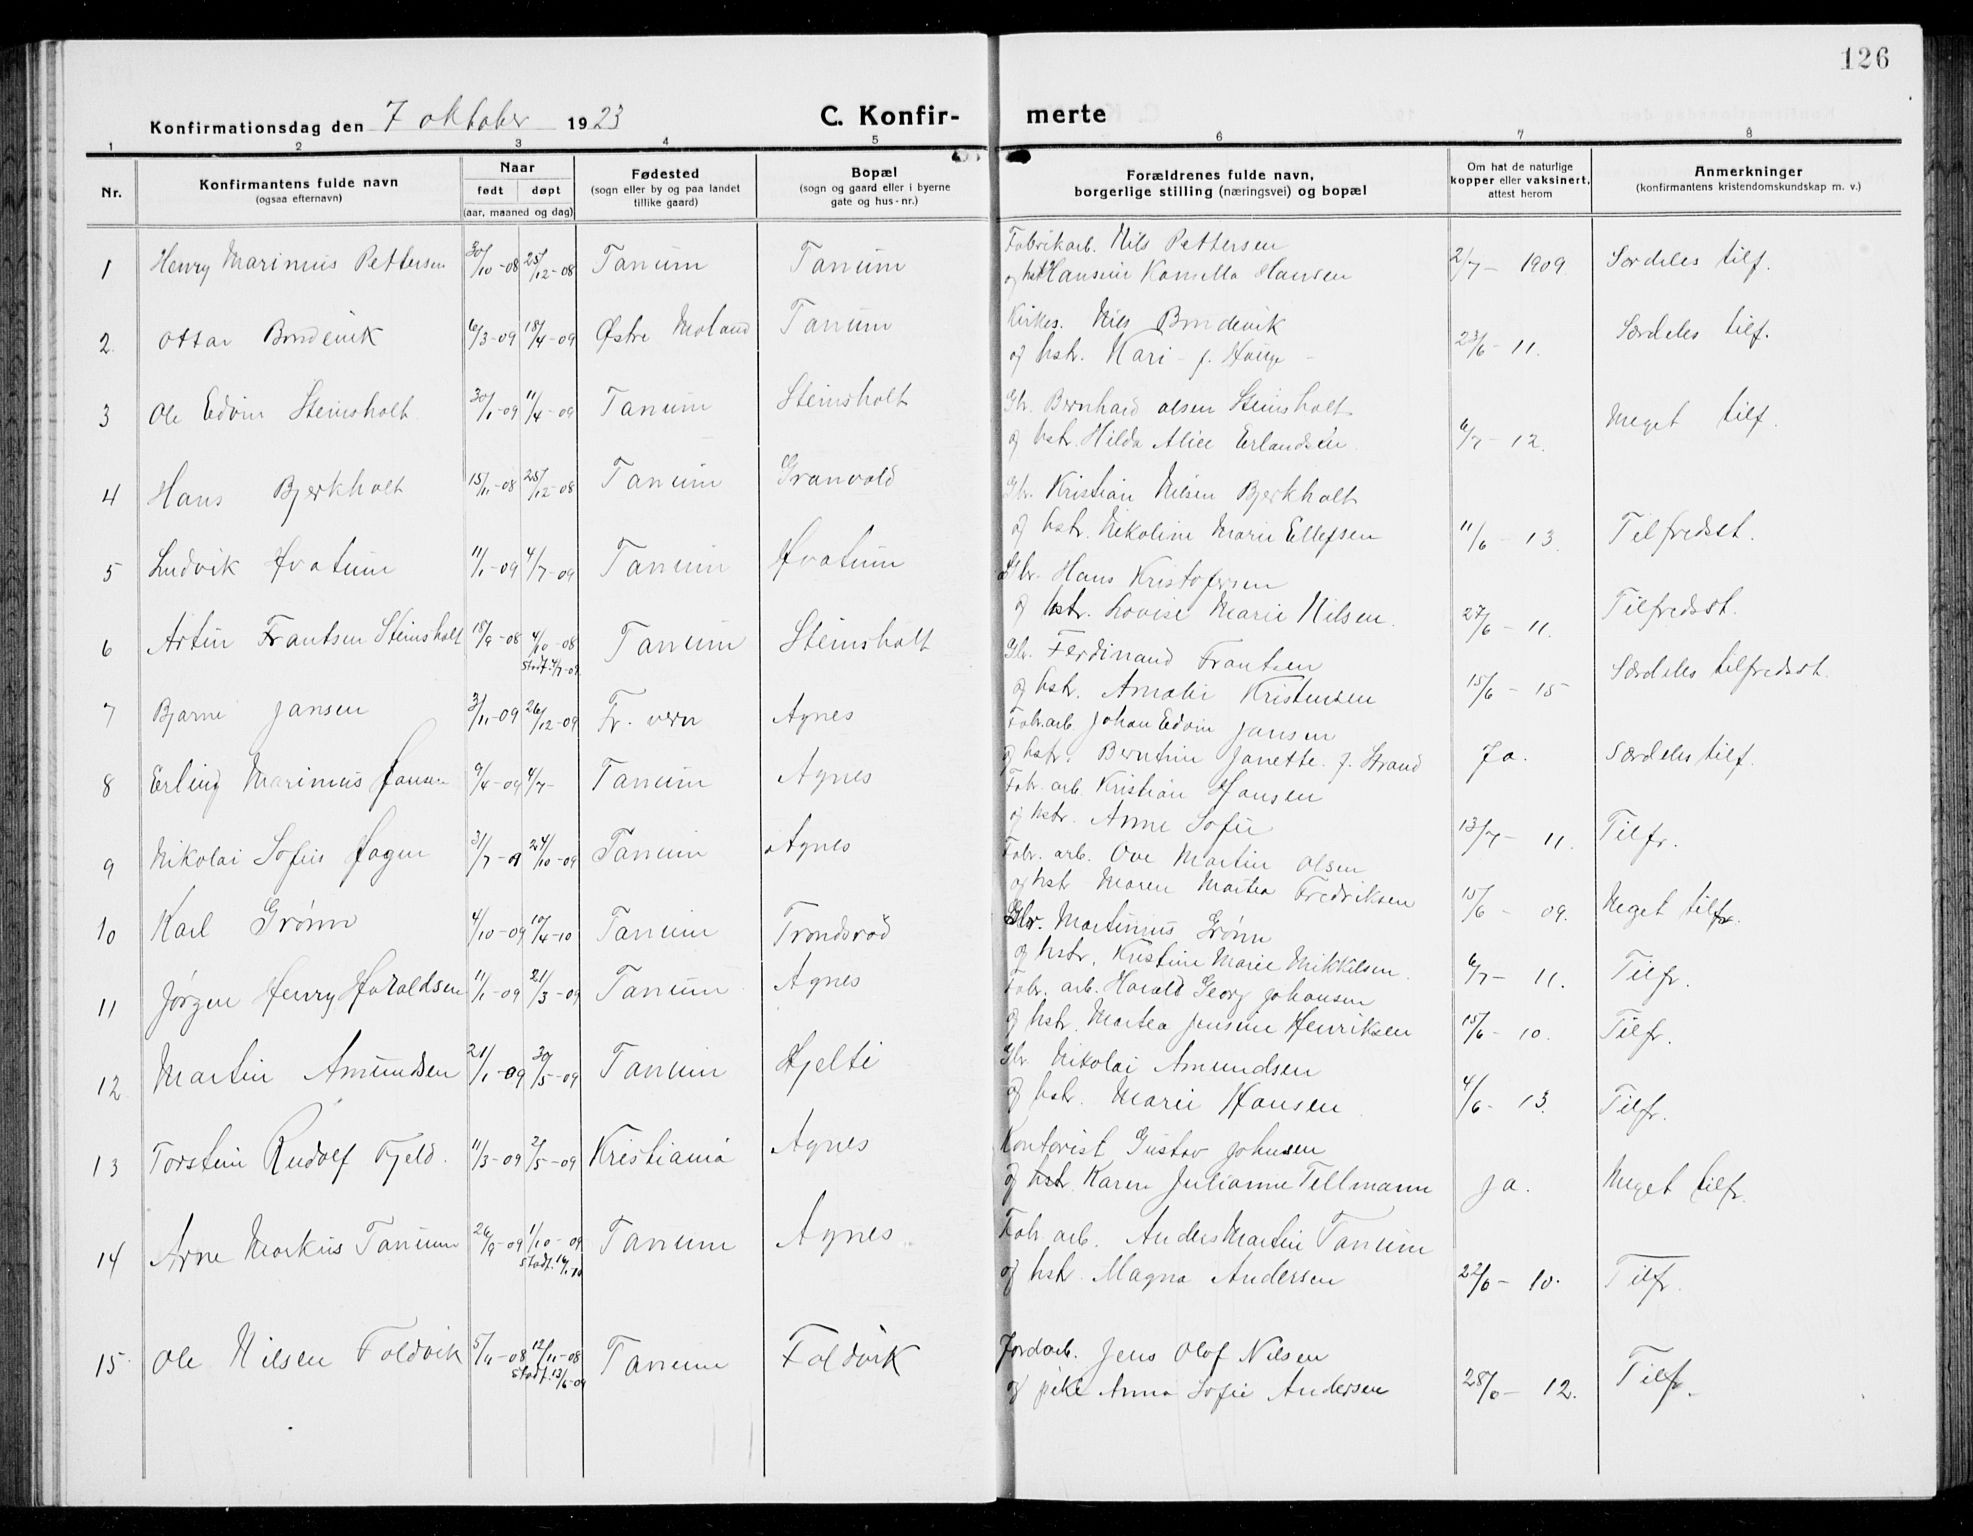 126
Konfirmationsdag den 7 oktober 1923 C. Konfir-merte
1 2 3 4 5 6 7 8
Nr. Konfirmantens fulde navn (ogsaa efternavn) Naar født døpt (aar, maaned og dag) Fødested (sogn eller by og paa landet tillike gaard) Bopæl (sogn og gaard eller i byerne gate og hus-nr.) Forældrenes fulde navn, borgerlige stilling (næringsvei) og bopæl Om hat de naturlige kopper eller vaksinert, attest herom Anmerkninger (konfirmantens kristendomskundskap m. v.)
1 Henry Marinius Pettersen 30/10-08 25/12-08 Tanum Tanum Fabrikarb. Nils Pettersen 2/7-1909 Særdeles tilf.
og hstr Hansine Kamilla Hansen
2 Ottar Bondevik 6/3-09 18/4-09 Østre Moland Tanum Kirkes. Nils Bondevik 23/6-11. Særdeles tilf.
og hstr. Kari f. Hauge
3 Ole Edvin Steinsholt 30/1-09 11/4-09 Tanum Steinsholt Gbr. Bernhard Olsen Steinsholt 6/7-12. Meget tilf.
og hstr. Hilda Alice Erlandsen
4 Hans Bjerkholt 15/11-08 25/12-08 Tanum Granvold Gbr. Kristian Nilsen Bjerkholt 11/6-13. Tilfredsst.
og hstr. Nikoline Marie Ellefsen
5 Ludvik Hvatum 11/1-09 4/7-09 Tanum Hvatum Gbr. Hans Kristofersen 27/6-11. Tilfredsst.
og hstr. Lovise Marie Nilsen.
6 Artin Frantsen Steinsholt 18/9-08 4/10-08 Tanum Steinsholt Gbr. Ferdinand Frantsen 15/6-15 Særdeles tilfredsst.
stadf. 4/7-09 og hstr. Amalie Kristensen
7 Bjarne Jansen 3/11-09 26/12-09 Fr. vern Agnes Fabr.arb. Johan Edvin Jansen Ja. Særdeles tilf.
og hstr. Berntine Janette f. Strand
8 Erling Marinius Hansen 9/4-09 4/7- Tanum Agnes Fabr. arb. Kristian Hansen 13/7-11. Tilfr.
og hstr. Anne Sofie
9 Nikolai Sofus Hagen 31/7-0 24/10-09 Tanum Agnes Fabr. arb. Ove Martin Olsen 15/6-09. Meget tilfr.
og hstr Maren Martea Fredriksen
10 Karl Grønn 4/10-09 10/4-10 Tanum Trondsrød Gbr. Martinius Grønn 6/7-11. Tilfr.
og hstr. Kristine Marie Mikkelsen.
11 Jørgen Henry Haraldsen 11/1-09 21/3-09 Tanum Agnes Fabr. arb. Harald Georg Johansen 15/6-10. Tilfr.
og hstr. Martea Jensine Henriksen
12 Martin Amundsen 21/1-09 30/5-09 Tanum Hjelti Gbr Nikolai Amundsen 4/6-13. Tilfr.
og hstr. Marie Hansen
13 Torstein Rudolf Fjeld. 11/3-09 2/5-09 Kristiania Agnes Kontorist Gustav Johnsen Ja. Meget tilfr.
og hstr Karen Julianne Tellmann
14 Arne Markus Tanum 26/9-09 1/10-09 Tanum Agnes Fabr. arb. Anders Martin Tanum 22/6-10. Tilfr.
stadf. og hstr. Magna Andersen
15 Ole Nilsen Foldvik 5/11-08 12/11-08 Tanum Foldvik Jordarb. Jens Olof Nilsen 28/6-12. Tilfr.
stadf. 13/6-09 og pike Anna Sofie Andersen